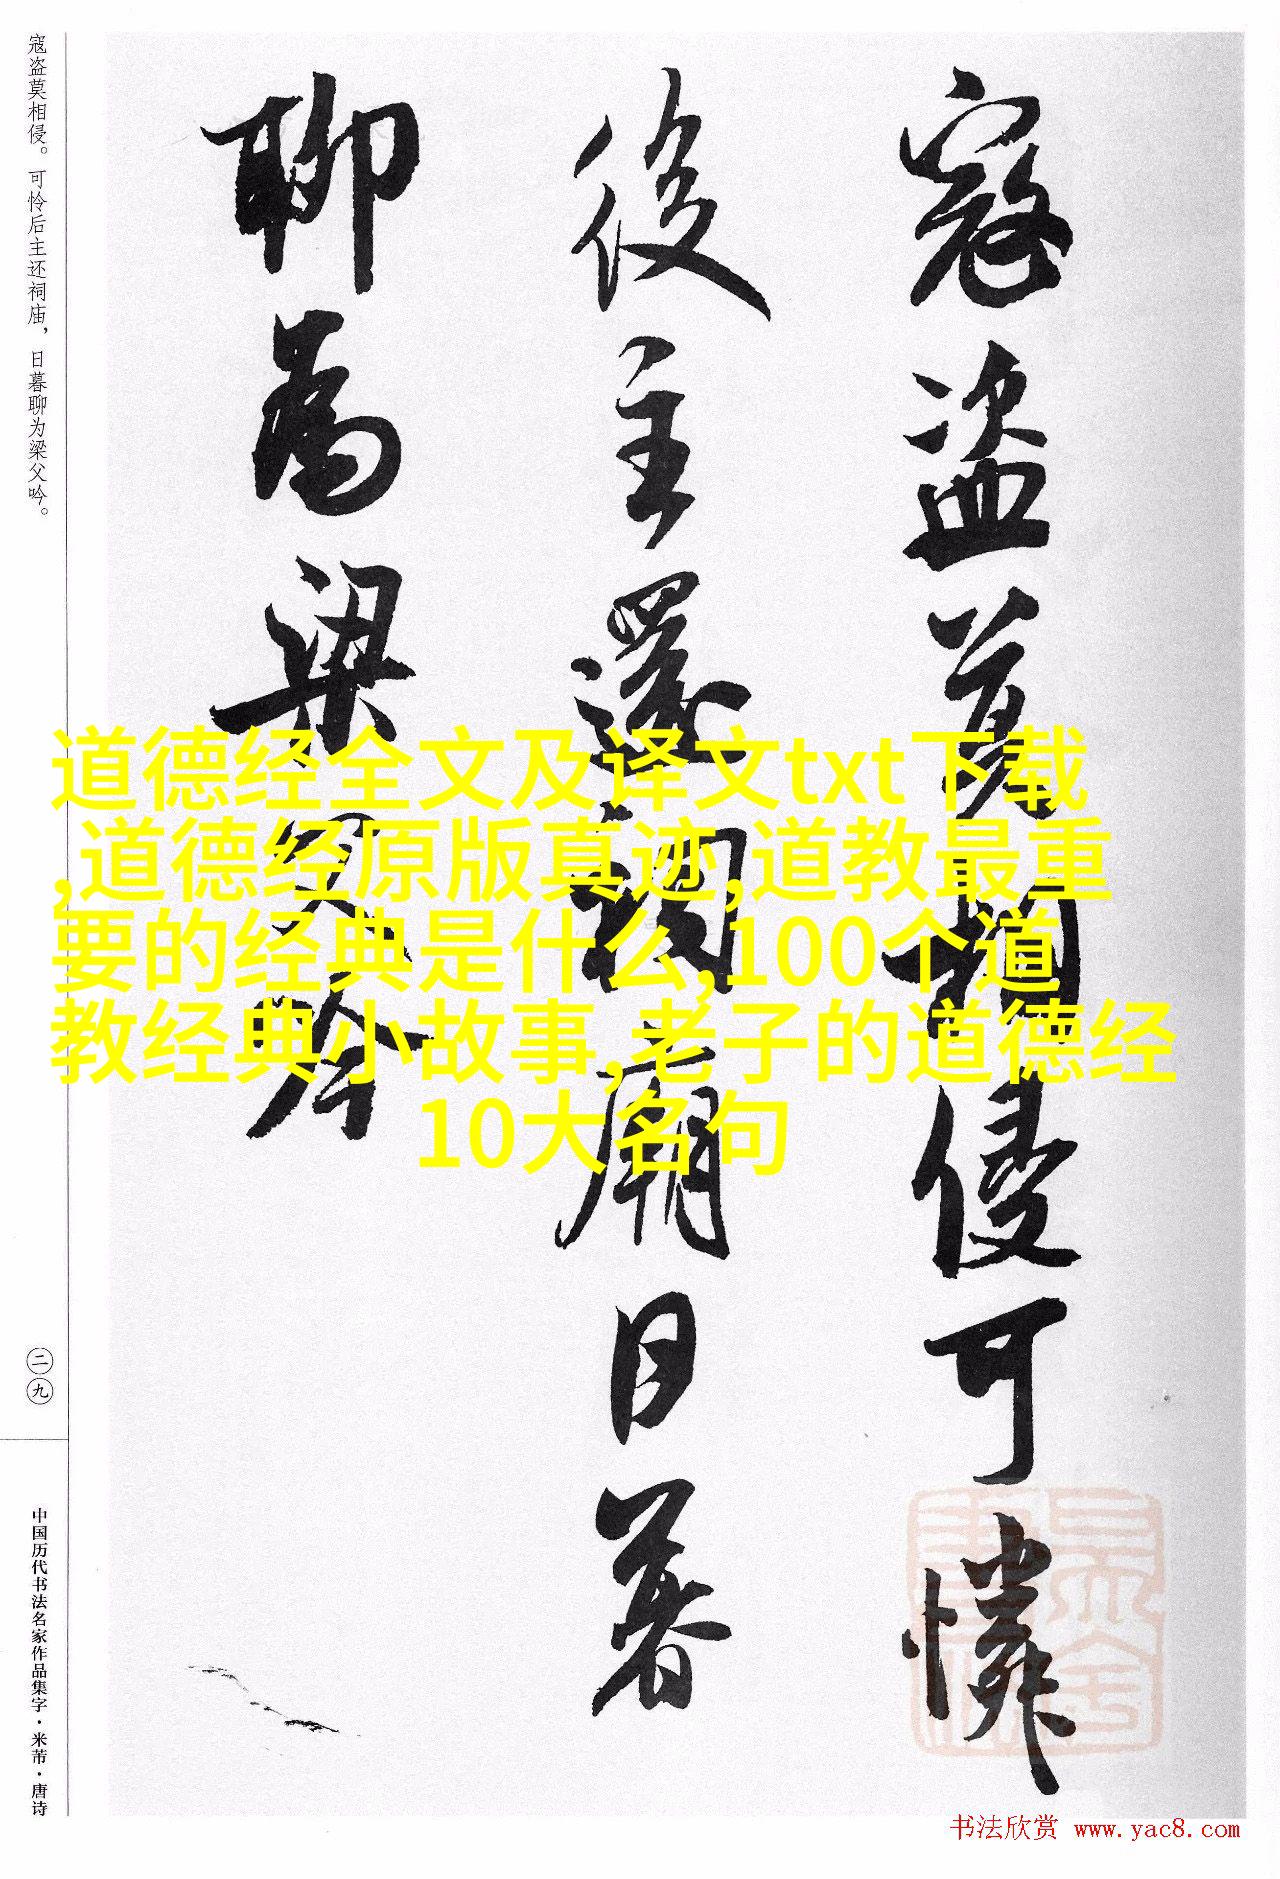 寇盗莫相侵。可怜后主还祠庙，日暮聊为梁父吟。
寇盗莫相侵可憐
後主還祠廟日暮
聊為梁父吟
道德经全文及译文txt下载
,道德经原版真迹,道教最重
要的经典是什么,100个道
教经典小故事,老子的道德经
10大名句
二九
中国历代书法名家作品集字·米芾·唐诗
书法欣赏 www.yac8.com